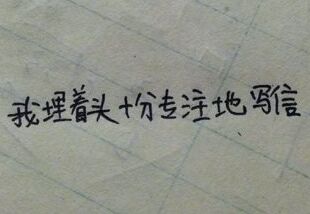 我埋着头十分专注地写信